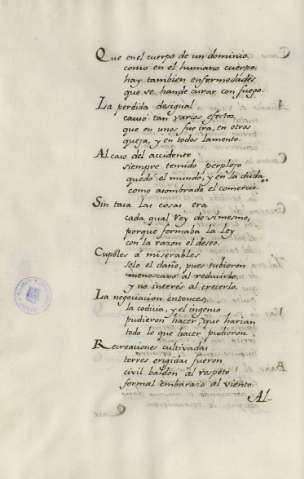 Que enel cuerpo de un dominio,
como en el humano cuerpo,
hay tambien enfermedades
que se hande curar con fuego.
La perdida desigual
causó tan varios efectos,
que en unos fue ira, en otros
queja, y en todos lamento.
Al caso del accidente
siempre temido perplejo
quedó el mundo, y en la duda
como asombrada el comercio.
Sin tasa las cosas era
cada qual Rey de si mesmo,
porque formaba la Ley
con la razon el deseo.
á miserables
solo el daño, pues pudieron
menoscavo al reducirlo
y no interés al crecerlo.
La negociacion entonces,
la codicia, y el ingenio
pudieron hacer, que harian
todo lo que hacer pudieron
Recreaciones cultivadas
torres erigidas fueron
civil baldon al respeto
formal embarazo al viento.
Al-